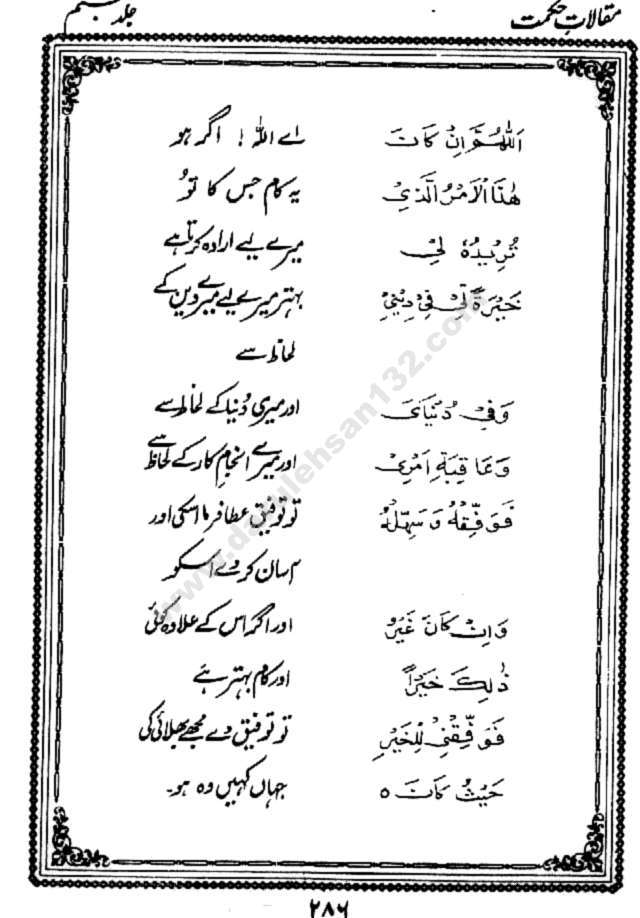 مقالاتِ حکمت جلد
اَللّٰهُمَّ اِنْ كَانَ اے اللہ! اگر ہو
هٰذَا الْاَمْرُ الَّذِیْ یہ کام جس کا تُو
تُرِیْدُهٗ لِیْ میرے لیے ارادہ کرتا ہے
خَیْرَةً لِّیْ فِیْ دِیْنِیْ بہتر میرے لیے میرے دین کے
لحاظ سے
وَفِیْ دُنْیَایَ اور میری دُنیا کے لحاظ سے
وَعَاقِبَةِ اَمْرِیْ اور میرے انجامِ کار کے لحاظ سے
فَوَفِّقْهُ وَسَهِّلْهُ تو توفیق عطا فرما اسکی اور
آسان کر دے اسکو
وَاِنْ كَانَ غَیْرُ اور اگر اس کے علاوہ کوئی
ذٰلِكَ خَیْرًا اور کام بہتر ہے
فَوَفِّقْنِیْ لِلْخَیْرِ تو توفیق دے مجھے بھلائی کی
حَیْثُ كَانَ ٥ جہاں کہیں وہ ہو۔
۲۸۶
www.darulehsan132.com